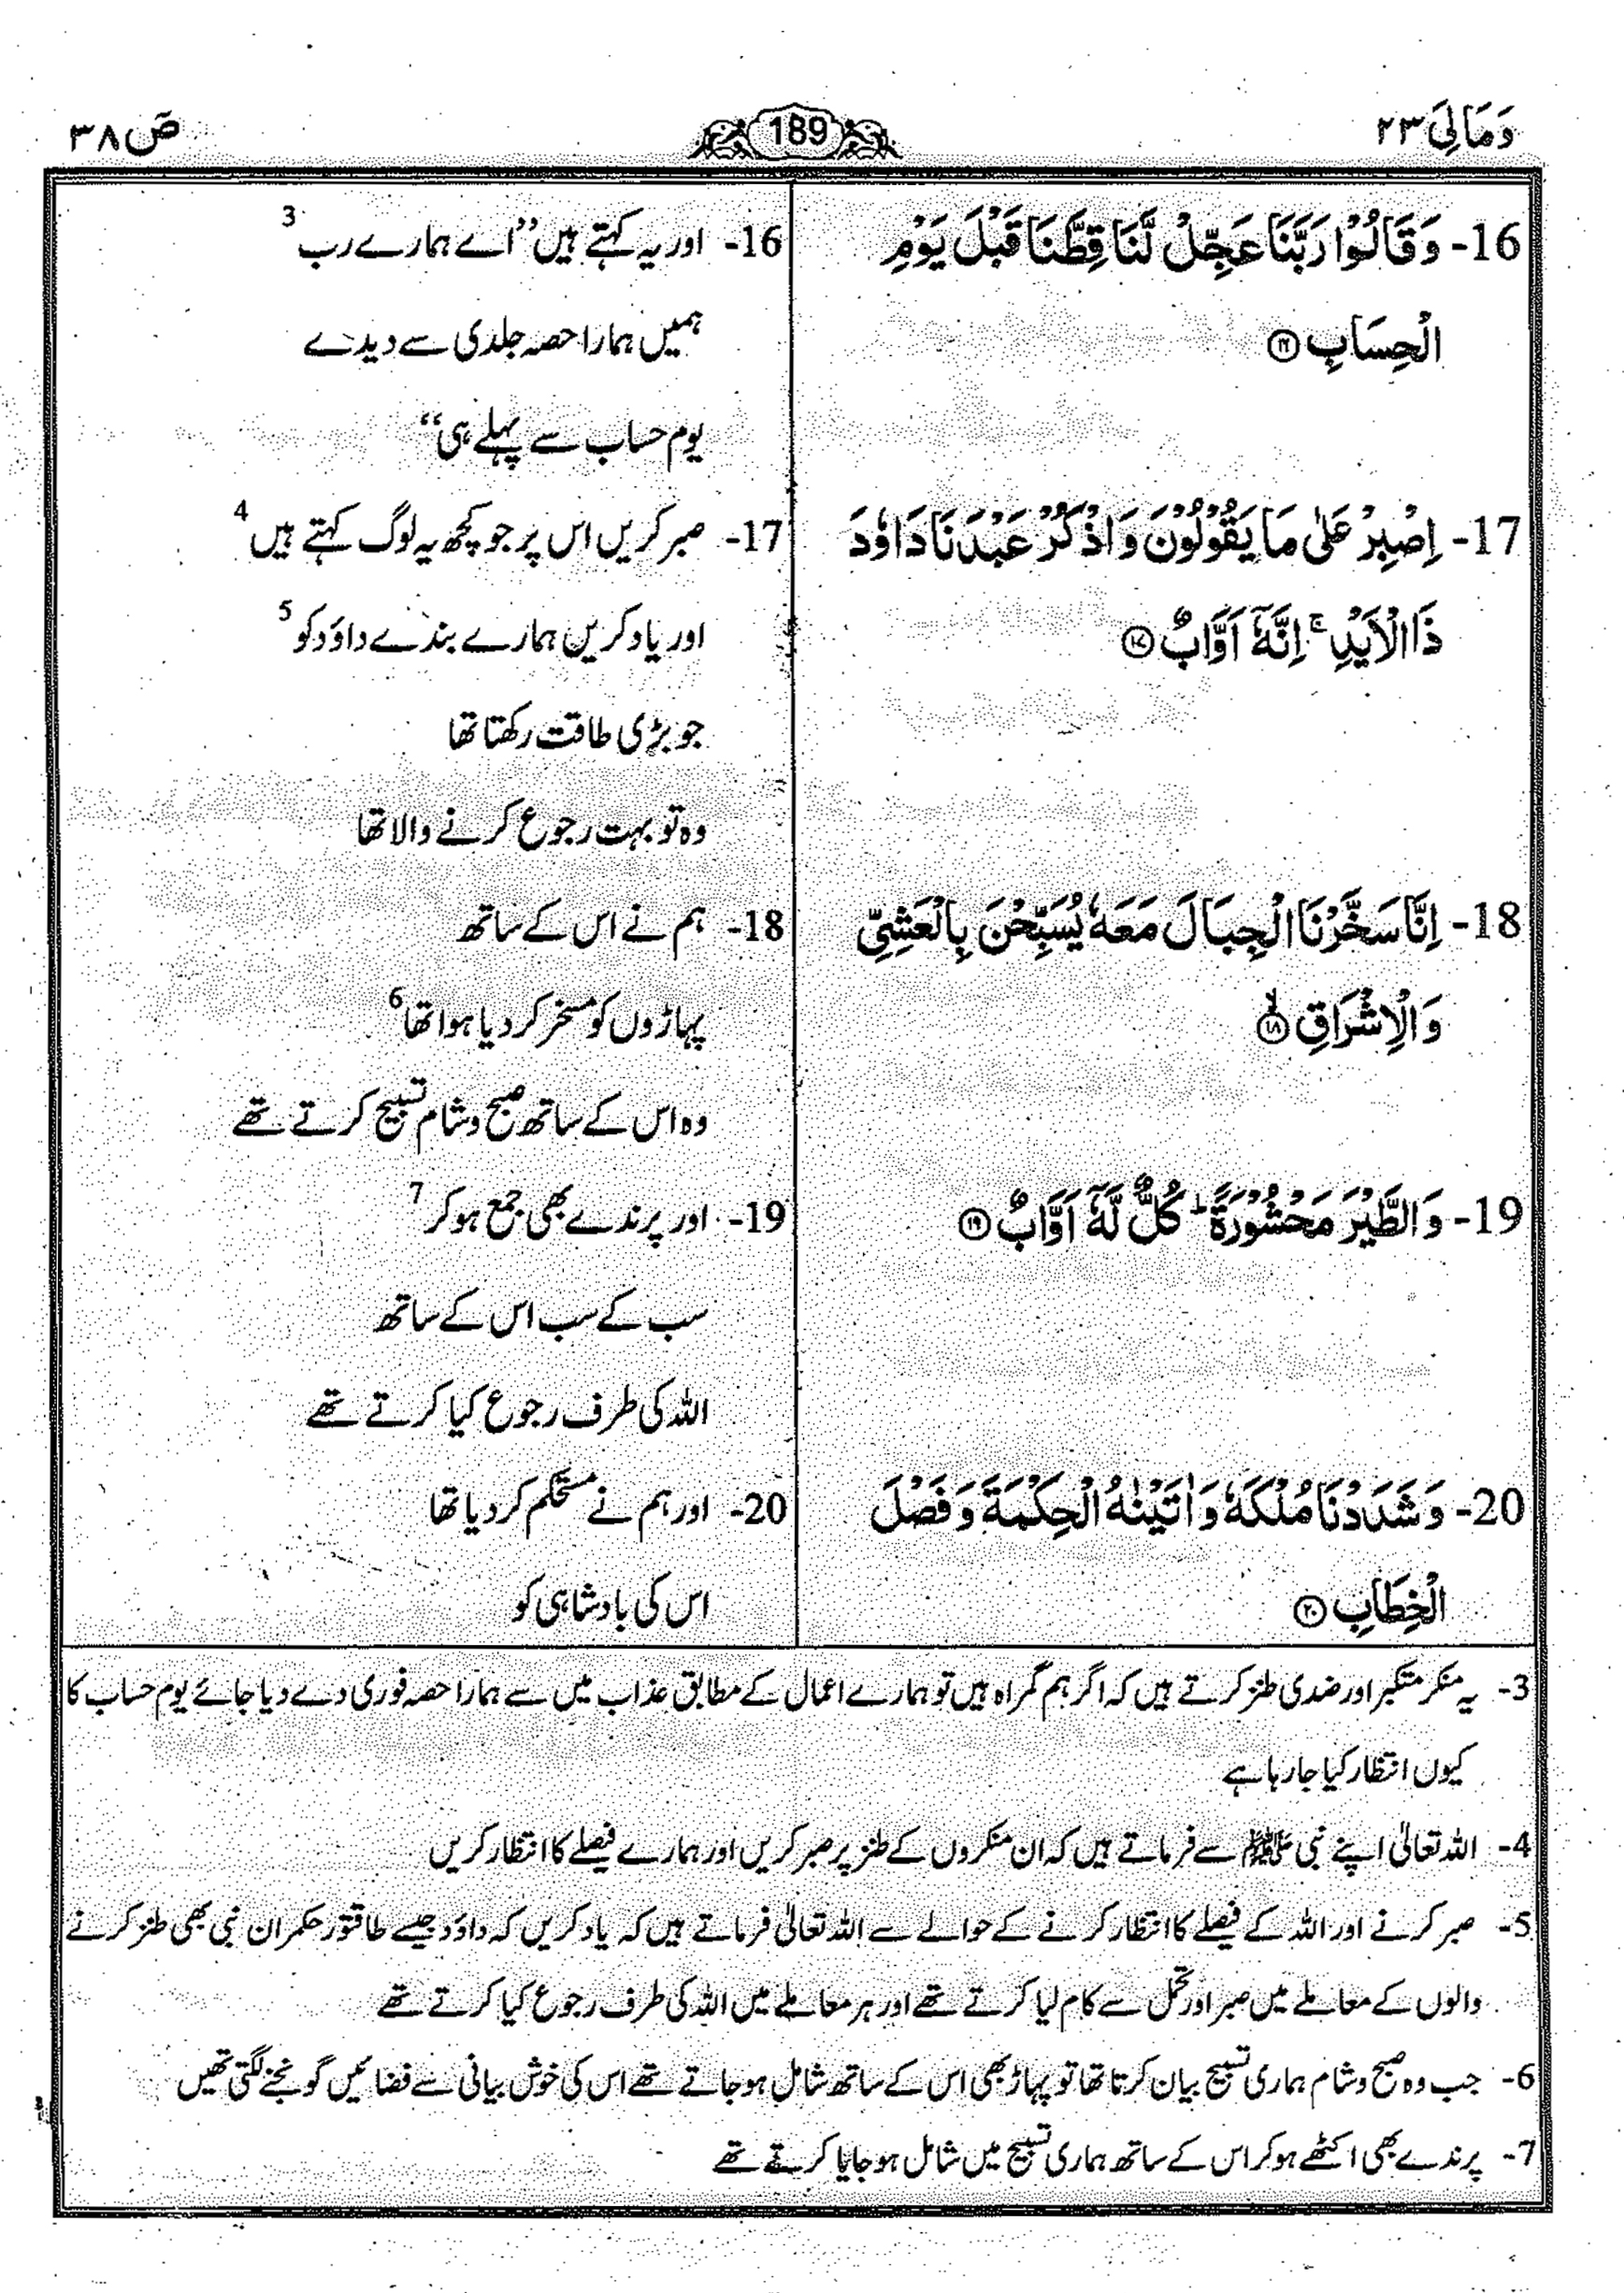 وَمَالِیَ ٢٣
189
صٓ ٣٨
16- وَقَالُوْا رَبَّنَا عَجِّلْ لَّنَا قِطَّنَا قَبْلَ يَوْمِ
الْحِسَابِ ⑯
17- اِصْبِرْ عَلٰى مَا يَقُوْلُوْنَ وَاذْكُرْ عَبْدَنَا دَاوٗدَ
ذَا الْاَيْدِ ۚ اِنَّهٗٓ اَوَّابٌ ⑰
18- اِنَّا سَخَّرْنَا الْجِبَالَ مَعَهٗ يُسَبِّحْنَ بِالْعَشِيِّ
وَالْاِشْرَاقِ ۙ ⑱
19- وَالطَّيْرَ مَحْشُوْرَةً ؕ كُلٌّ لَّهٗٓ اَوَّابٌ ⑲
20- وَشَدَدْنَا مُلْكَهٗ وَاٰتَيْنٰهُ الْحِكْمَةَ وَفَصْلَ
الْخِطَابِ ⑳
16- اور یہ کہتے ہیں ’’اے ہمارے رب 3
ہمیں ہمارا حصہ جلدی سے دیدے
یوم حساب سے پہلے ہی‘‘
17- صبر کریں اس پر جو کچھ یہ لوگ کہتے ہیں 4
اور یاد کریں ہمارے بندے داوٗد کو 5
جو بڑی طاقت رکھتا تھا
وہ تو بہت رجوع کرنے والا تھا
18- ہم نے اس کے ساتھ
پہاڑوں کو مسخر کر دیا ہوا تھا 6
وہ اس کے ساتھ صبح و شام تسبیح کرتے تھے
19- اور پرندے بھی جمع ہوکر 7
سب کے سب اس کے ساتھ
اللہ کی طرف رجوع کیا کرتے تھے
20- اور ہم نے مستحکم کر دیا تھا
اس کی بادشاہی کو
3- یہ منکر متکبر اور ضدی طنز کرتے ہیں کہ اگر ہم گمراہ ہیں تو ہمارے اعمال کے مطابق عذاب میں سے ہمارا حصہ فوری دے دیا جائے یوم حساب کا
کیوں انتظار کیا جا رہا ہے
4- اللہ تعالیٰ اپنے نبی ﷺ سے فرماتے ہیں کہ ان منکروں کے طنز پر صبر کریں اور ہمارے فیصلے کا انتظار کریں
5- صبر کرنے اور اللہ کے فیصلے کا انتظار کرنے کے حوالے سے اللہ تعالیٰ فرماتے ہیں کہ یاد کریں کہ داوٗد جیسے طاقتور حکمران نبی بھی طنز کرنے
والوں کے معاملے میں صبر اور تحمل سے کام لیا کرتے تھے اور ہر معاملے میں اللہ کی طرف رجوع کیا کرتے تھے
6- جب وہ صبح و شام ہماری تسبیح بیان کرتا تھا تو پہاڑ بھی اس کے ساتھ شامل ہو جاتے تھے اس کی خوش بیانی سے فضائیں گونجنے لگتی تھیں
7- پرندے بھی اکٹھے ہوکر اس کے ساتھ ہماری تسبیح میں شامل ہو جایا کرتے تھے